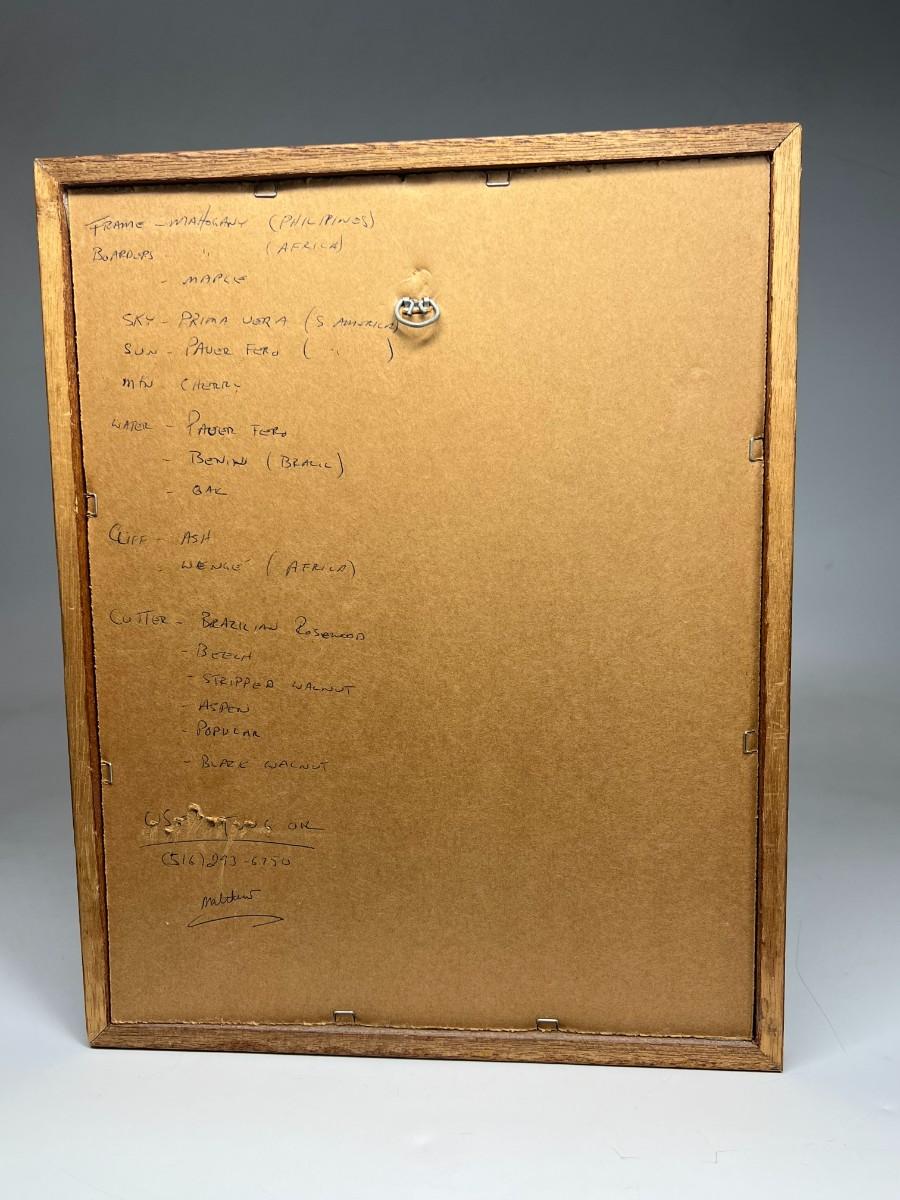 FRAME - MAHOGANY (PHILIPINES)
BOARDERS " (AFRICA)
- MAPLE
SKY - PRIMA VERA (S. AMERICA)
SUN - PAUER FERO ( " )
MTN CHERRY
WATER - PAUER FERO
- BENIN (BRAZIL)
- OAK
CLIFF - ASH
- WENGE (AFRICA)
CUTTER - BRAZILIAN ROSEWOOD
- BEECH
- STRIPPED WALNUT
- ASPEN
- POPULAR
- BLACK WALNUT
OR
(516) 293-6750
Matthew